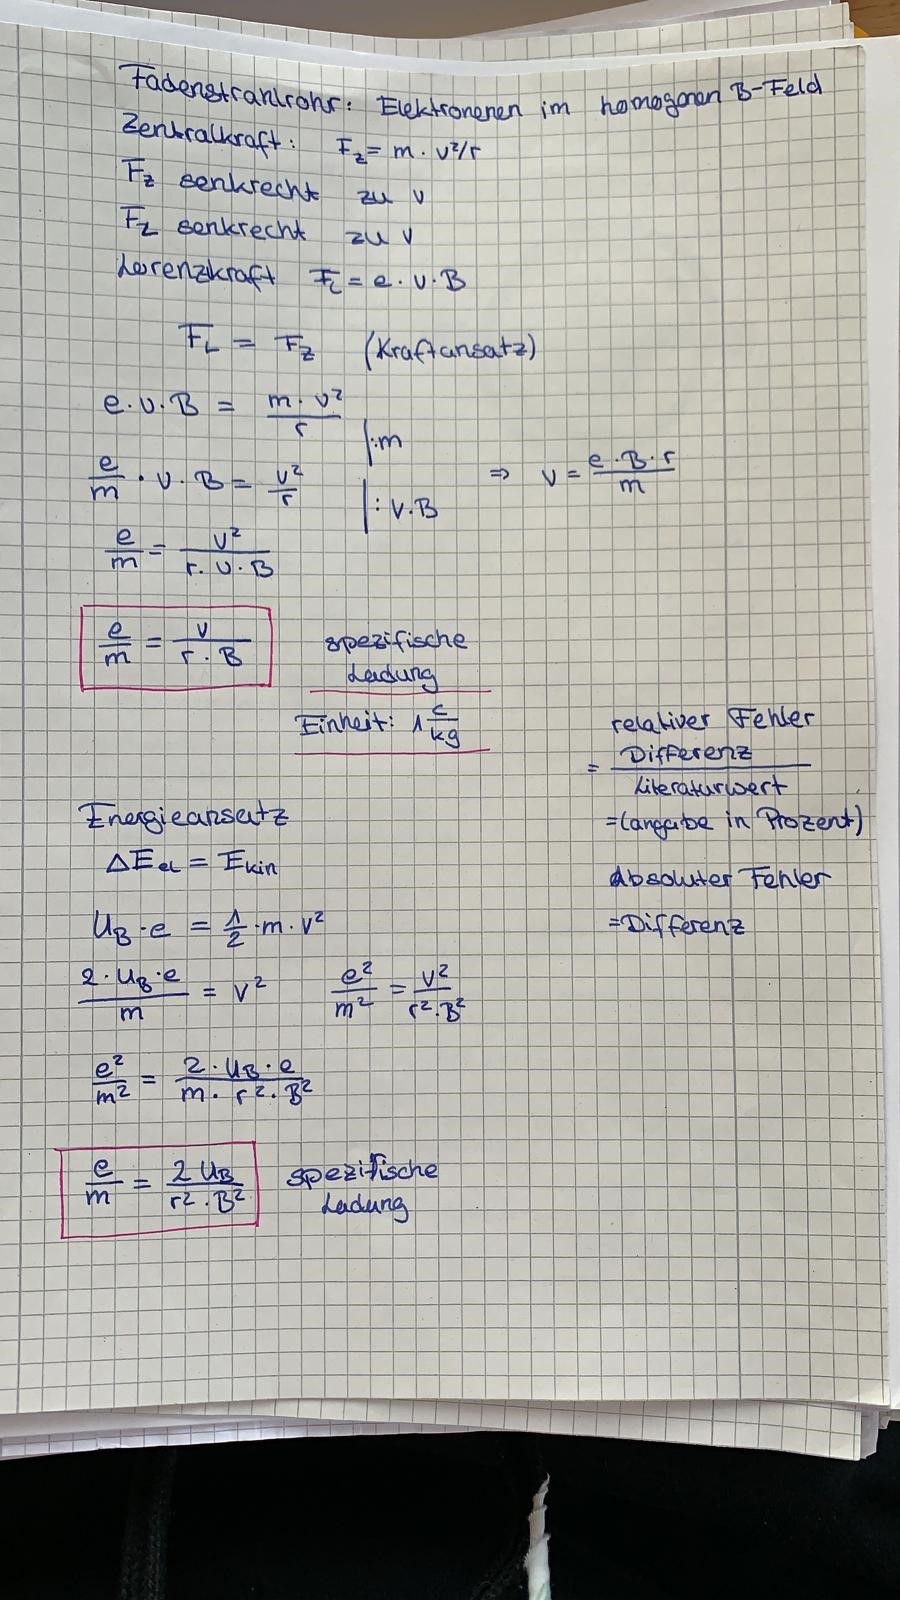 Fadenstrahlrohr: Elektronenen im homogenen B-Feld
Zentralkraft: F_Z = m · v²/r
F_Z senkrecht zu v
F_Z senkrecht zu v
Lorenzkraft F_L = e · v · B
F_L = F_Z (Kraftansatz)
e · v · B = m · v² / r |:m
e/m · v · B = v²/r |: v · B ⇒ v = e · B · r / m
e/m = v² / r · v · B
e/m = v / r · B spezifische Ladung
Einheit: 1 C/kg
relativer Fehler
= Differenz / Literaturwert
= (angabe in Prozent)
Absoluter Fehler
= Differenz
Energieansatz
ΔE_el = E_kin
U_B · e = 1/2 · m · v²
2 · U_B · e / m = v² e²/m² = v² / r² · B²
e²/m² = 2 · U_B · e / m · r² · B²
e/m = 2 U_B / r² · B² spezifische Ladung